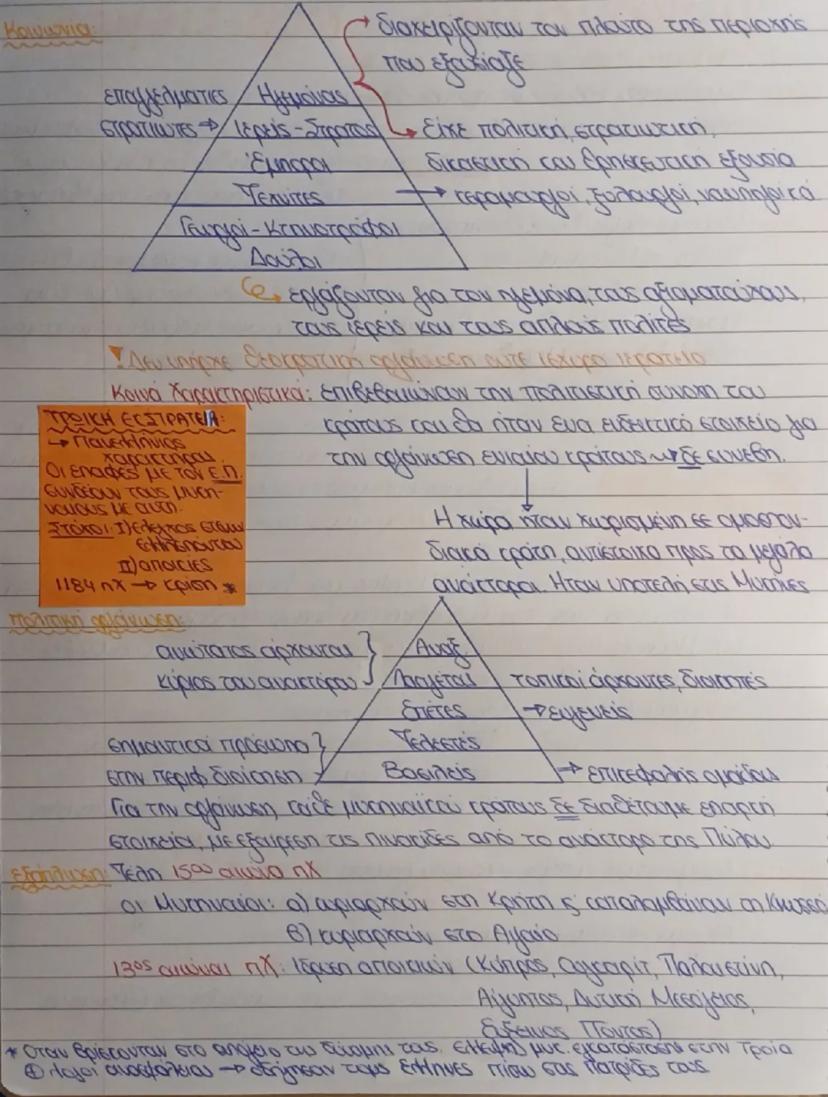 Κοινωνία:
διαχειρίζονταν τον πλούτο της περιοχής
που εξουσίαζε
επαγγελματίες
στρατιώτες →
Ηγεμόνας
Ιερείς - Στρατός
Έμποροι
Τεχνίτες
Γεωργοί - Κτηνοτρόφοι
Δούλοι
Είχε πολιτική, στρατιωτική,
δικαστική και θρησκευτική εξουσία
→ κεραμουργοί, ξυλουργοί, ναυπηγοί κά
εργάζονταν για τον ηγεμόνα, τους αξιωματούχους,
τους ιερείς και τους απλούς πολίτες
! Δεν υπήρχε θεοκρατική οργάνωση ούτε ισχυρό ιερατείο
Κοινά Χαρακτηριστικά: επιβεβαιώνουν την πολιτιστική συνοχή του
κράτους και θα ήταν ένα ενδεικτικό στοιχείο για
την οργάνωση ενιαίου κράτους → δε συνέβη.
Η χώρα ήταν χωρισμένη σε ομοσπον-
διακά κράτη, αντίστοιχα προς τα μεγάλα
ανάκτορα. Ήταν υποτελή στις Μυκήνες
ΤΡΩΙΚΗ ΕΚΣΤΡΑΤΕΙΑ:
→ Πανελλήνιος
χαρακτήρας
Οι επαφές με τον Ε.Π.
συνδέουν τους μυκη-
ναίους με αυτή.
Στόχοι: I) έλεγχος στον
Ελλήσποντου
II) αποικίες
1184 πΧ → κρίση *
Πολιτική οργάνωση:
ανώτατος άρχοντας
κύριος του ανακτόρου
Άναξ
Λαγέται
Επέτες
Τελεστές
Βασιλείς
τοπικοί άρχοντες, διοικητές
→ ευγενείς
σημαντικά πρόσωπα
στην περιφ. διοίκηση
→ επικεφαλής ομάδας
Για την οργάνωση κάθε μυκηναϊκού κράτους δε διαθέτουμε επαρκή
στοιχεία, με εξαίρεση τις πινακίδες από το ανάκτορο της Πύλου
Εξάπλωση: Τέλη 15ου αιώνα πΧ
οι Μυκηναίοι: α) κυριαρχούν στη Κρήτη ς καταλαμβάνουν τη Κνωσσό
β) κυριαρχούν στο Αιγαίο
13ος αιώνας πΧ: Ίδρυση αποικιών (Κύπρος, Ουγκαρίτ, Παλαιστίνη,
Αίγυπτος, Δυτική Μεσόγειος,
Εύξεινος Πόντος)
* Όταν βρίσκονταν στο απόγειο της δύναμής τους. έλλειψη μυκ. εγκατάστασης στην Τροία
⊕ λόγοι ανασφάλειας → οδήγησαν τους Έλληνες πίσω στις πατρίδες τους